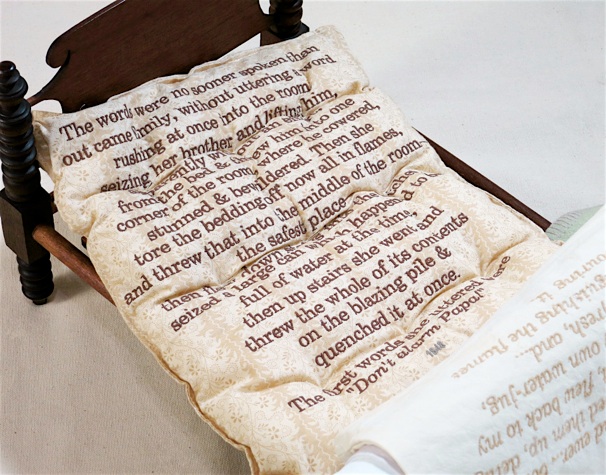 The words were no sooner spoken than
out came Emily, without uttering a word
rushing at once into the room
seizing her brother and lifting him,
from the bed &
corner of the room where he covered,
stunned & bewildered. Then she
tore the bedding off now all in flames,
and threw that into the middle of the room
the safest place
then
seized a large can which happened to
full of water at the time,
then up stairs she went and
threw the whole of its contents
on the blazing pile &
quenched it at once.
The first words she uttered were
"Don't alarm Papa"
1848
ouring it
guishing the flames
fresh, and...
own water-jug,
flew back to my
ed them up,
nd ever